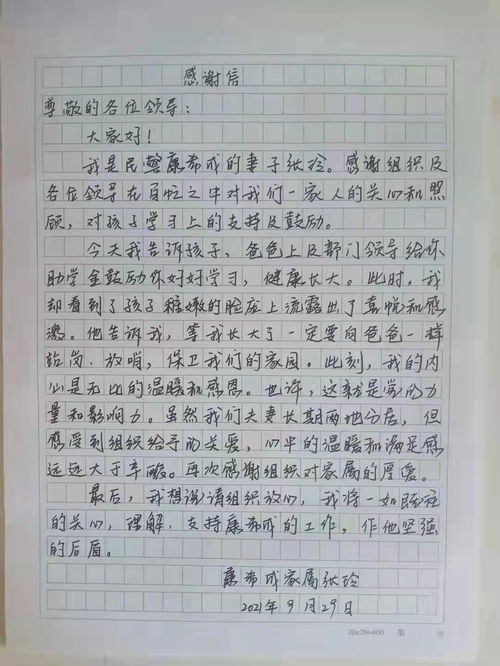 感谢信
尊敬的各位领导：
大家好！
我是民警廉希成的妻子张玲。感谢组织及
各位领导在百忙之中对我们一家人的关心和照
顾，对孩子学习上的支持及鼓励。
今天我告诉孩子，爸爸上及部门领导给你
助学金鼓励你好好学习，健康长大。此时，我
却看到了孩子稚嫩的脸庞上流露出了喜悦和感
激。他告诉我，等我长大了一定要向爸爸一样
站岗、放哨，保卫我们的家园。此刻，我的内
心是无比的温暖和感恩。也许，这就是党的力
量和影响力。虽然我们夫妻长期两地分居，但
感受到组织给予的关爱，心中的温暖和满足感
远远大于辛酸。再次感谢组织对家属的厚爱。
最后，我想请组织放心，我将一如既往
的关心，理解、支持廉希成的工作，作他坚强
的后盾。
廉希成家属张玲
2021年9月29日
20x20=400 第 页